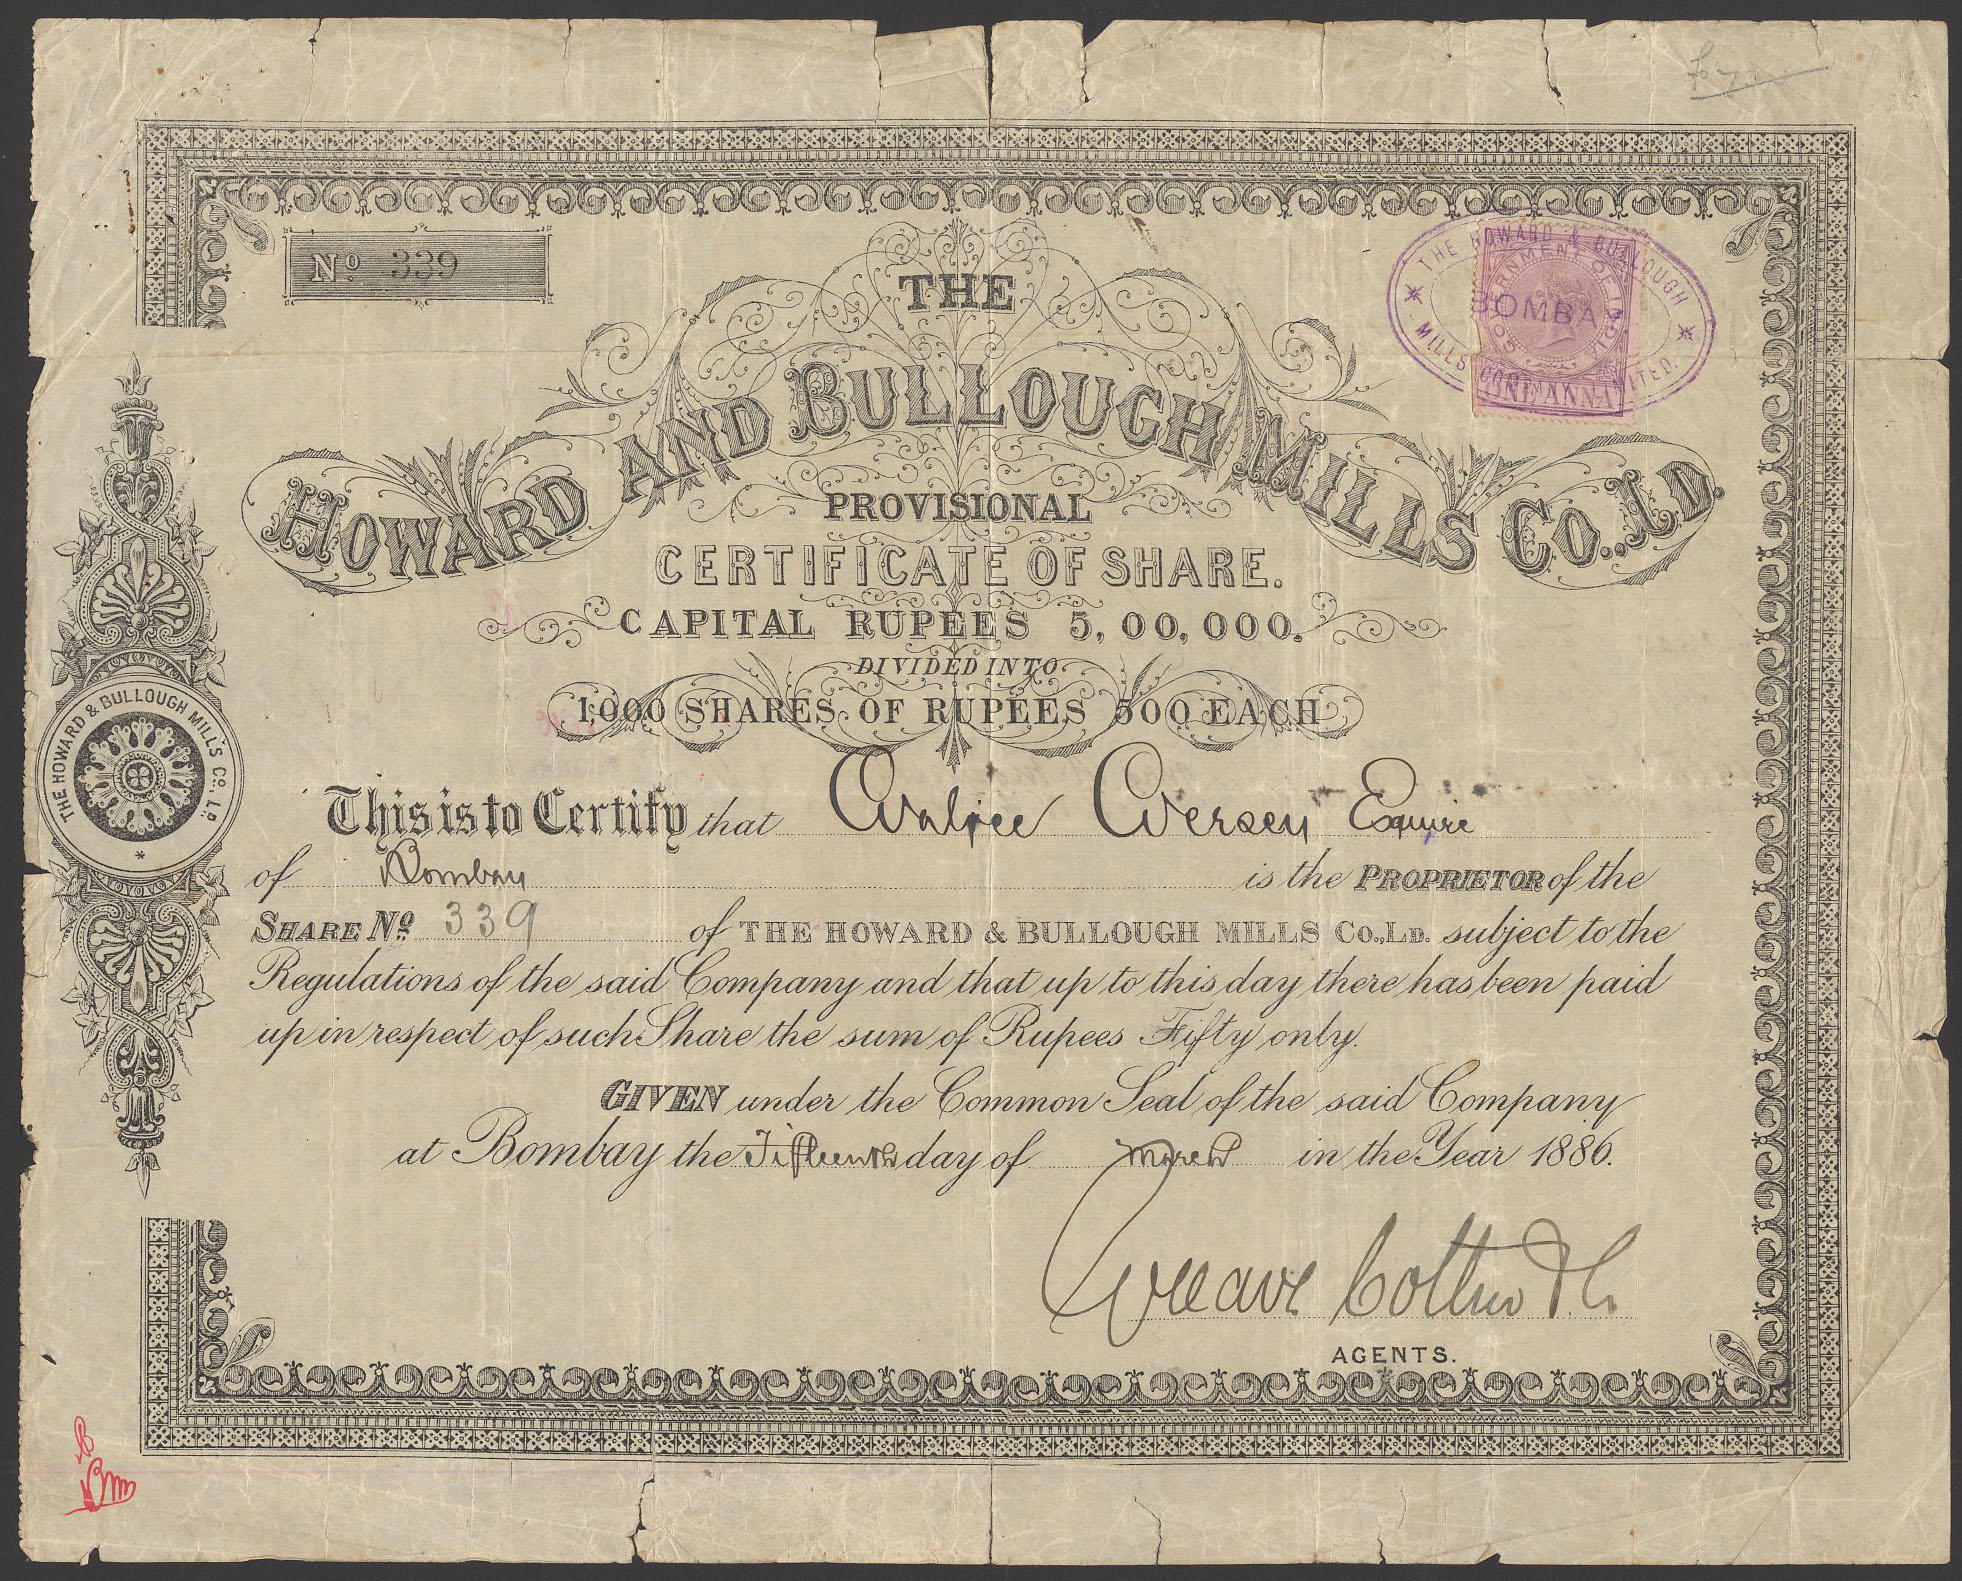 No 339
THE HOWARD & BULLOUGH
MILLS COMPANY LIMITED.
BOMBAY
GOVERNMENT OF INDIA
ONE ANNA
THE
HOWARD AND BULLOUGH MILLS Co., LD.
PROVISIONAL
CERTIFICATE OF SHARE.
CAPITAL RUPEES 5,00,000.
DIVIDED INTO
1,000 SHARES OF RUPEES 500 EACH
THE HOWARD & BULLOUGH MILL'S CO., LD. *
This is to Certify that Esquire
of Bombay is the PROPRIETOR of the
SHARE No. 339 of THE HOWARD & BULLOUGH MILLS Co., LD. subject to the
Regulations of the said Company and that up to this day there has been paid
up in respect of such Share the sum of Rupees Fifty only.
GIVEN under the Common Seal of the said Company
at Bombay the Fifteenth day of March in the Year 1886.
Greaves Cotton & Co
AGENTS.